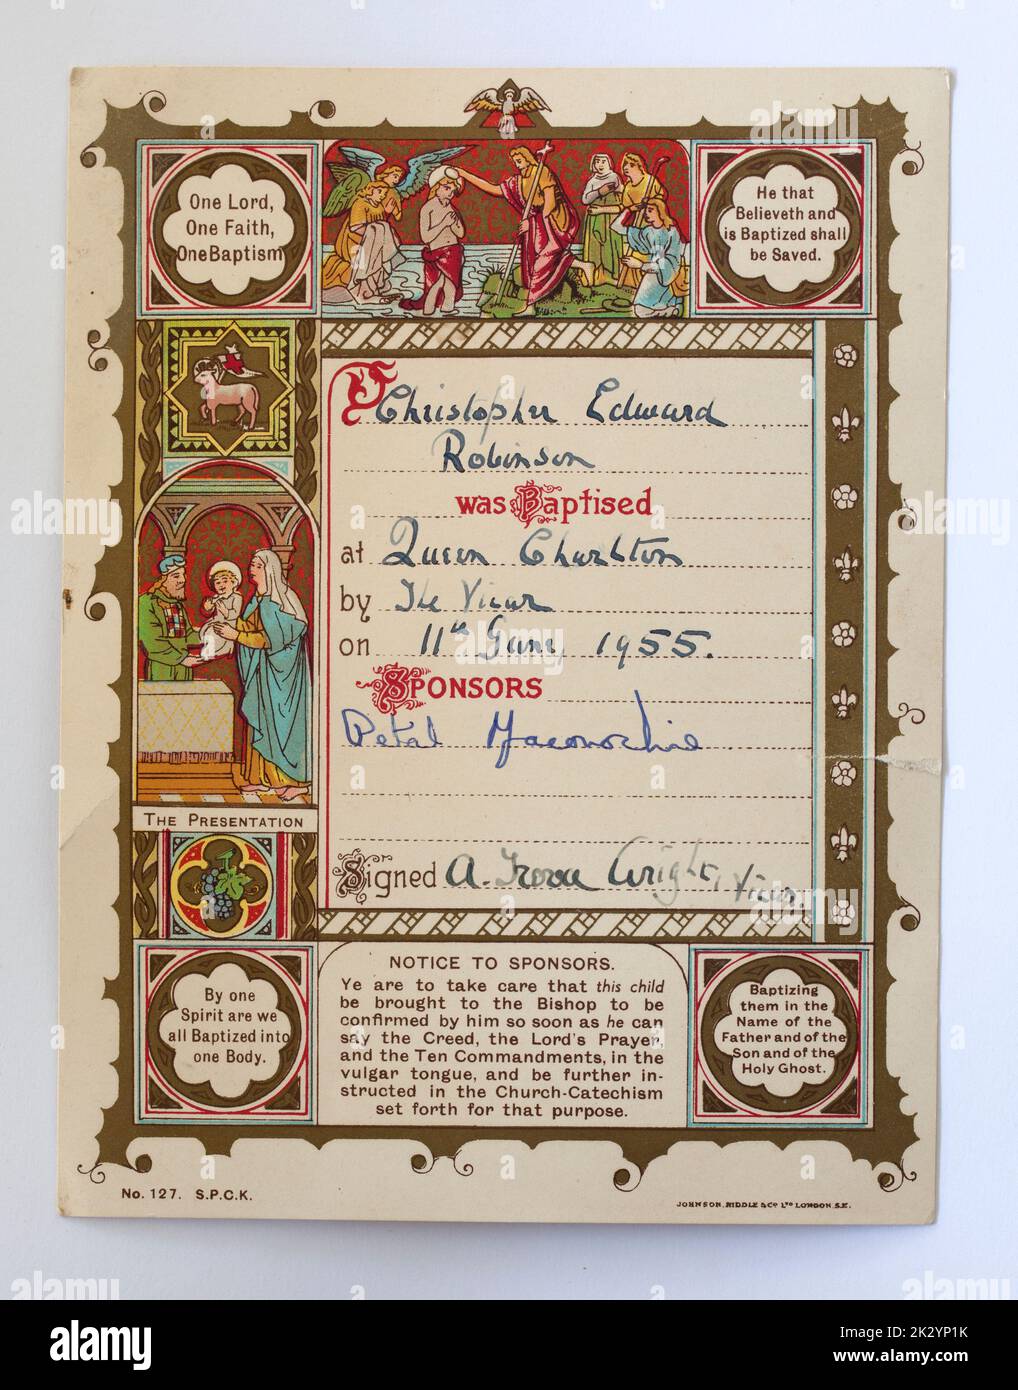 One Lord,
One Faith,
One Baptism
He that
Believeth and
is Baptized shall
be Saved.
Christopher Edward
Robinson
was Baptised
at Queen Charlton
by The Vicar
on 11th June, 1955.
SPONSORS
Petal Maconochie
THE PRESENTATION
Signed A. Wright, Vicar.
By one
Spirit are we
all Baptized into
one Body.
NOTICE TO SPONSORS.
Ye are to take care that this child
be brought to the Bishop to be
confirmed by him so soon as he can
say the Creed, the Lord's Prayer,
and the Ten Commandments, in the
vulgar tongue, and be further in-
structed in the Church-Catechism
set forth for that purpose.
Baptizing
them in the
Name of the
Father and of the
Son and of the
Holy Ghost.
No. 127. S.P.C.K.
JOHNSON, RIDDLE & CO LTD LONDON, S.E.
alamy
Image ID: 2K2YP1K
www.alamy.com